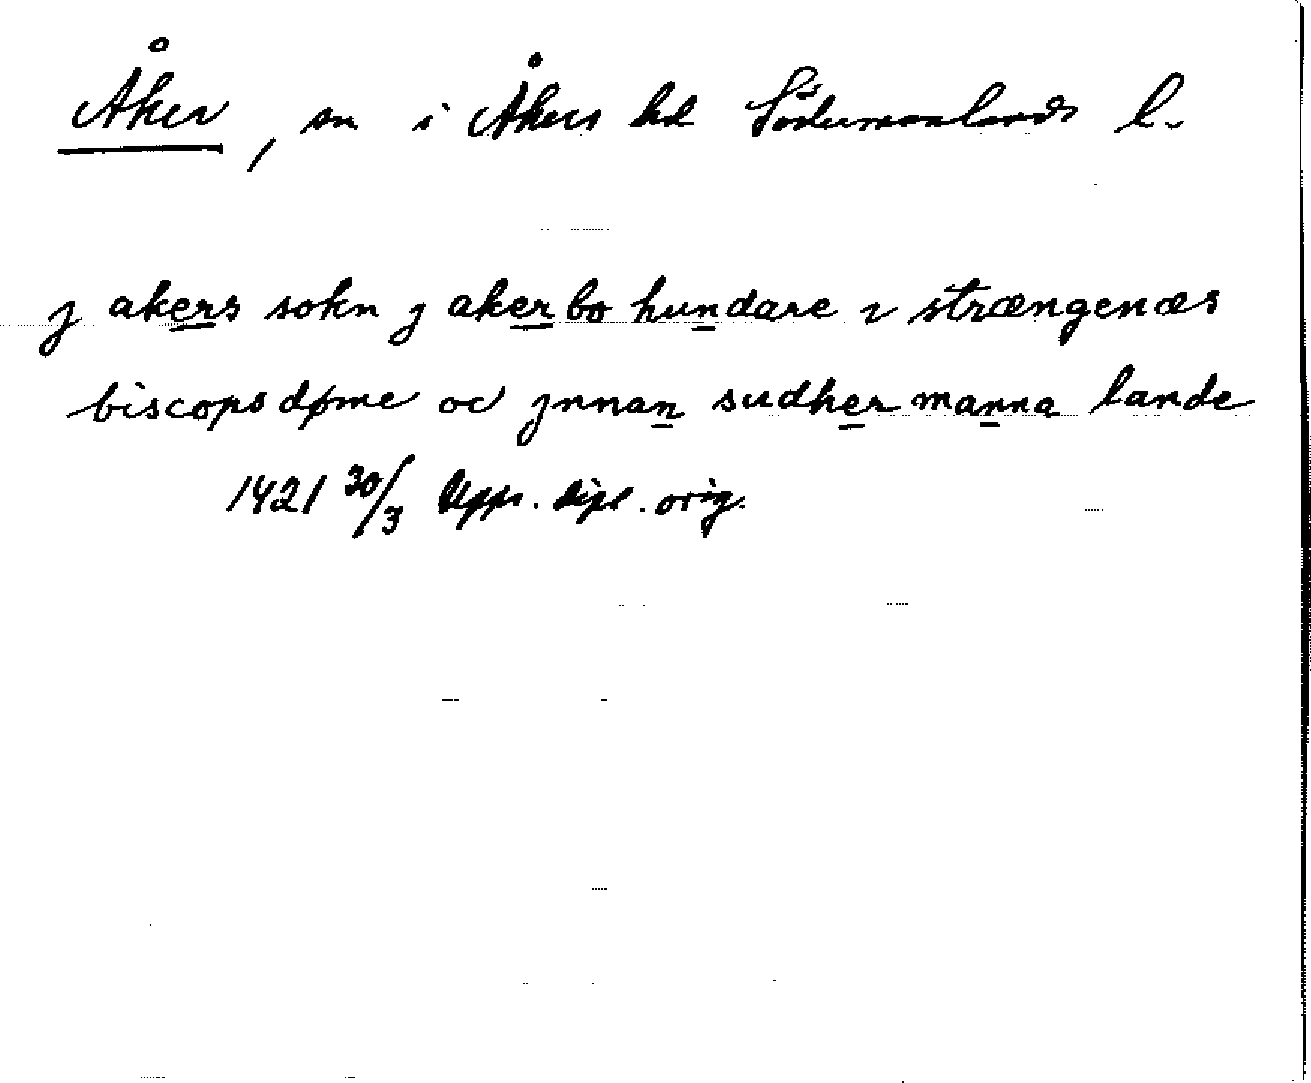 Åker, sn i Åkers hd Södermanlands l.
j akers sokn j akerbo hundare i strængenæs
biscops døme oc jnnan sudhermanna lande
1421 30/3 Upps. dipl. orig.